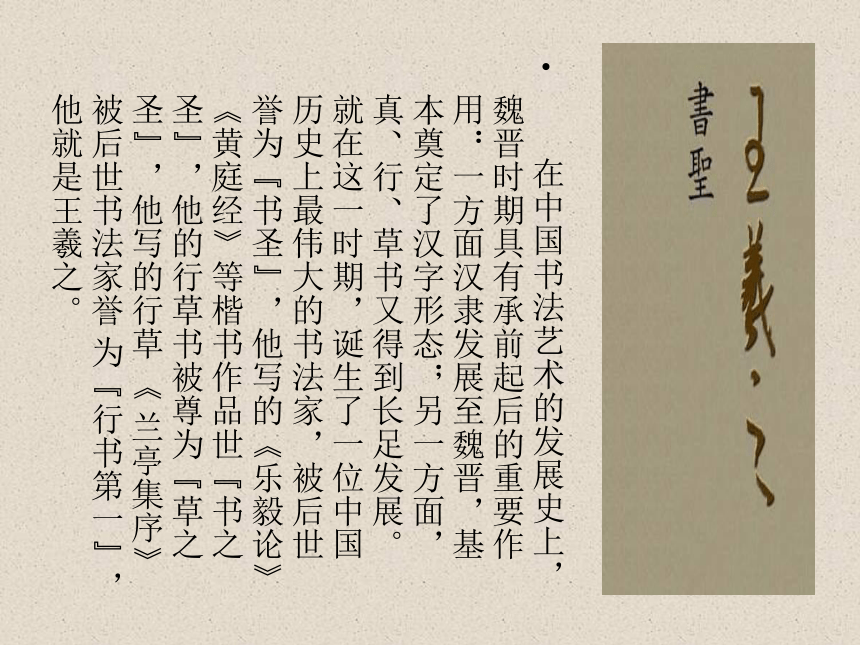 王羲之
書聖
•
在中国书法艺术的发展史上，
魏晋时期具有承前起后的重要作
用：一方面汉隶发展至魏晋，基
本奠定了汉字形态；另一方面，
真、行、草书又得到长足发展。
就在这一时期，诞生了一位中国
历史上最伟大的书法家，被后世
誉为『书圣』，他写的《乐毅论》
《黄庭经》等楷书作品世『书之
圣』，他的行草书被尊为『草之
圣』，他写的行草《兰亭集序》
被后世书法家誉 为『行书第一』，
他就是王羲之。